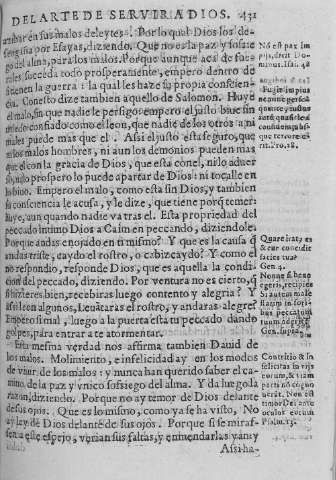 DEL ARTE DE SERVIR A DIOS. 431
en sus malos deleytes. Por lo qual Dios los de
por Esayas, diziendo. Que no es la paz y sosie
go del alma, para los malos. Porque aunque
les succeda todo prosperamente, empero dentro de
tienen la guerra: la qual les haze su propia conscien
cia. Con esto dize tambien aquello de Salomon. Huye
el malo, sin que nadie le persiga: empero el justo biue sin
miedo confiado como el leon, que
puede mas que el. Assi el justo esta seguro, que
los malos hombres, ni aun los demonios pueden mas
que el con la gracia de Dios, que esta con el, ni lo aduer
so, ni lo prospero lo puede apartar de Dios: ni tocalle en
lo biuo. Empero el malo, como esta sin Dios, y tambien
su consciencia le acusa, y le dize, que tiene porq̃ temer:
huye, aun quando nadie va tras el. Esta propriedad del
peccado intimo Dios a Caim en peccando, diziendole:
Porque andas enojado en ti mismo? Y que es la causa q̃
andas triste, caydo el rostro, o cabizcaydo? Y como el
no respondio, responde Dios, que es aquella la condi
cion del peccado, diziendo. Por ventura no es cierto, q̃
si hizieres bien, recebiras luego contento y alegria? Y
algunos, Leuãtaras el rostro, y andaras alegre?
Empero si mal, luego a la puerta esta tu peccado dando
golpes, para entrar a te atormentar.
Esta mesma verdad nos affirma tambien Dauid de
los malos. Molimiento, e infelicidad ay en los modos
de viuir de los malos: y nunca han querido saber el ca-
mino de la paz y vnico sossiego del alma. Y da luego la
razon, diziendo. Porque no ay temor de Dios delante
de sus ojos. Que es lo mismo, como ya se ha visto, No
ay ley de Dios delãte de sus ojos. Porque si se miras-
sen a este espejo, verian sus faltas, y enmendarlas yan: y
Assi ha-
Nõ est pax im
pijs, dicit Do-
minus. Isai. 48
Fugit impius
Pro. 28.
Quare irat9 es
& cur concidit
facies tua?
Gen. 4.
Nonne si bene
egeris, recipies
Si autem male
statim in
foribus peccatum
Contritio & in
felicitas in vijs
eorum, & viam
pacis nõ cogno
uerũt. Non est
timor Dei ante
oculos eorum
Psalm. 13.